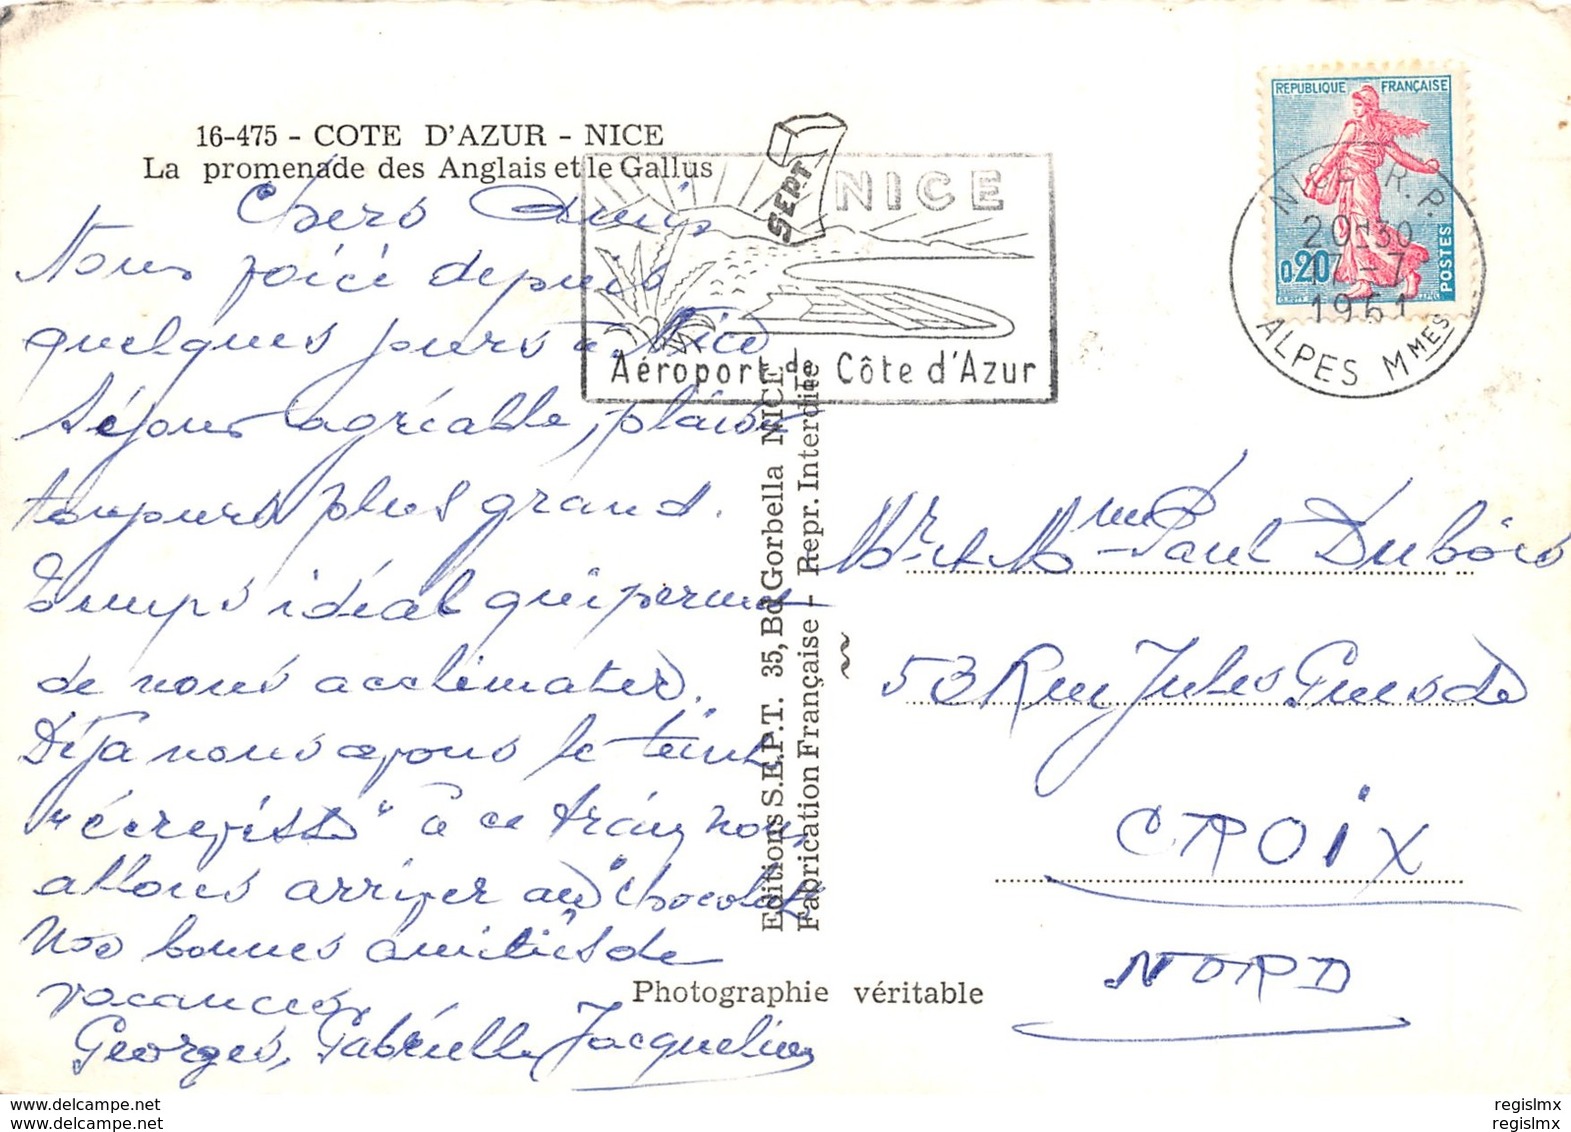 16-475 - COTE D'AZUR - NICE
La promenade des Anglais et le Gallus
Chers Amis
Nous voici depuis
quelques jours à Nice
Séjour agréable, plaisir
toujours plus grand.
Temps idéal qui permet
de nous acclimater.
Déjà nous avons le teint
"écrevisse" à ce train nous
allons arriver au "chocolat"
Nos bonnes amitiés de
vacances,
Georges, Gabrielle, Jacqueline
Editions S.E.P.T. 35, Bd Gorbella NICE
Fabrication Française - Repr. Interdite
Photographie véritable
SEPT
NICE
Aéroport de Côte d'Azur
REPUBLIQUE FRANÇAISE
0,20
POSTES
NICE R.P.
20H30
17-7
1961
ALPES MMES
Mr et Mme Paul Dubois
53 Rue Jules Guesde
CROIX
NORD
delcampe.net
delcampe.net
regislmx
regislmx